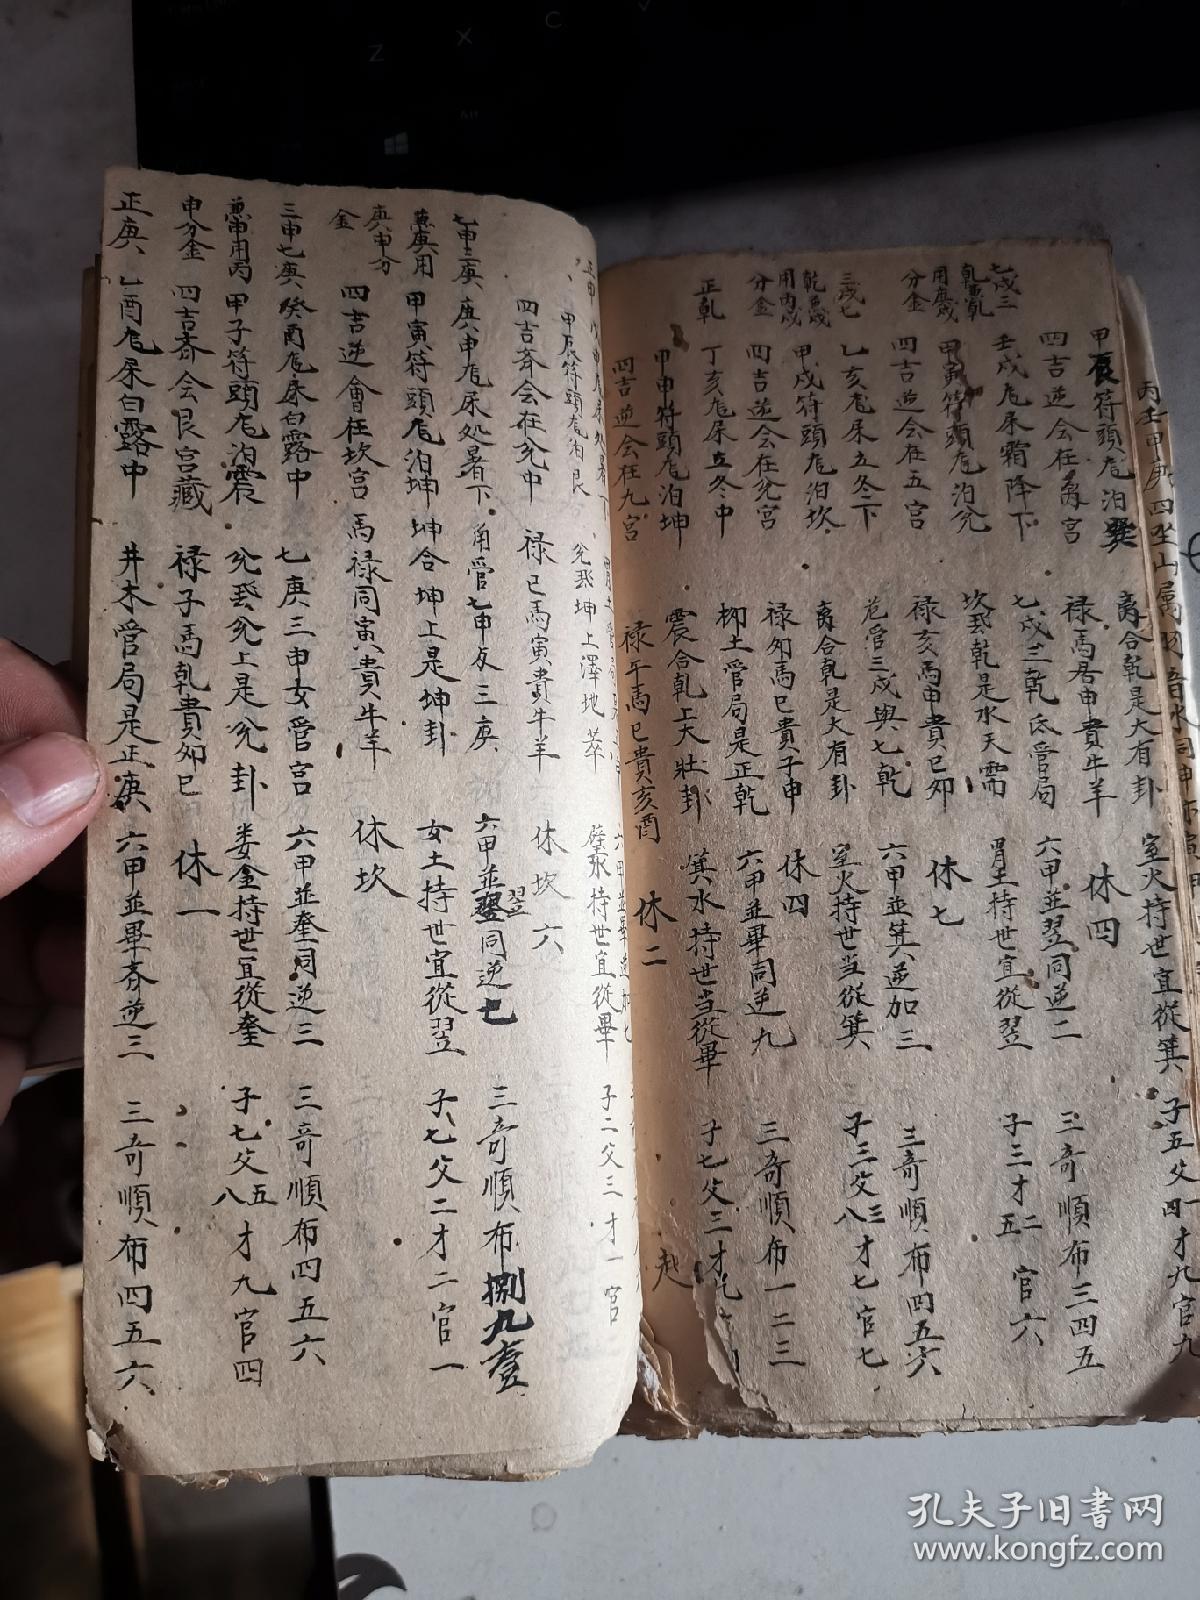 丙壬甲庚四坐山屬
甲辰符頭尨泊巽 离合乾是大有卦 室火持世宜從箕 子五父四才九官九
四吉逆会在离宮 禄馬居申貴牛羊 休四
七戌三乾 壬戌尨尿霜降下 七戌三乾氐管局 六甲並翌同逆二 三奇順布三四五
用庚戌分金 甲寅符頭尨泊兊 坎飛乾是水天需 胃土持世宜從翌 子三才二五官六
四吉逆会在五宮 禄亥馬申貴巳卯 休七
三戌七乾 乙亥尨尿立冬下 危管三戌與七乾 六甲並箕逆加三 三奇順布四五六
用丙戌分金 甲戌符頭尨泊坎 离合乾是大有卦 室火持世当從箕 子三父三八才七官七
四吉逆会在兊宮 禄卯馬巳貴子申 休四
正乾 丁亥尨尿立冬中 柳土管局是正乾 六甲並畢同逆九 三奇順布一二三
甲申符頭尨泊坤 震合乾上大壯卦 箕水持世当從畢 子七父三才
四吉逆会在九宮 禄午馬巳貴亥酉 休二
甲辰符頭尨泊艮 兊飛坤上澤地萃 壁水持世宜從畢 子二父三才一官
四吉斉会在兊中 禄巳馬寅貴牛羊 休坎六
七申三庚 庚申尨尿处暑下 角管七申及三庚 六甲並翌同逆七 三奇順布捌九壹
兼庚用庚申分金 甲寅符頭尨泊坤 坤合坤上是坤卦 女土持世宜從翌 子七父二才二官一
四吉逆會在坎宮 馬禄同寅貴牛羊 休坎
三申七庚 癸酉尨尿白露中 七庚三申女管宮 六甲並奎同逆三 三奇順布四五六
兼申用丙申分金 甲子符頭尨泊震 兊飛兊上是兊卦 娄金持世宜從奎 子七父五八才九官四
四吉斉会艮宮藏 禄子馬乾貴卯巳 休一
正庚 乙酉尨尿白露中 井木管局是正庚 六甲並畢斉逆三 三奇順布四五六
孔夫子旧书网
www.kongfz.com